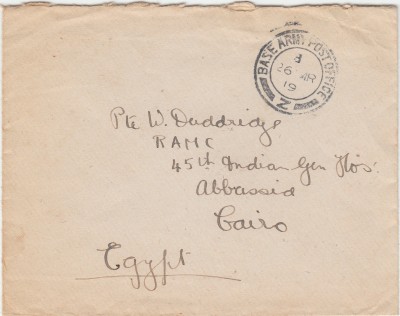 BASE ARMY POST OFFICE
26 MAR
19
Z
Pte W. Duddridge
RAMC
45th Indian Gen Hos:
Abbassia
Cairo
Egypt